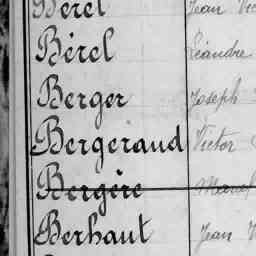 Bérel Jean Vic
Bérel Léandre
Berger Joseph
Bergeraud Victor
Bergère Marcel
Berhaut Jean V